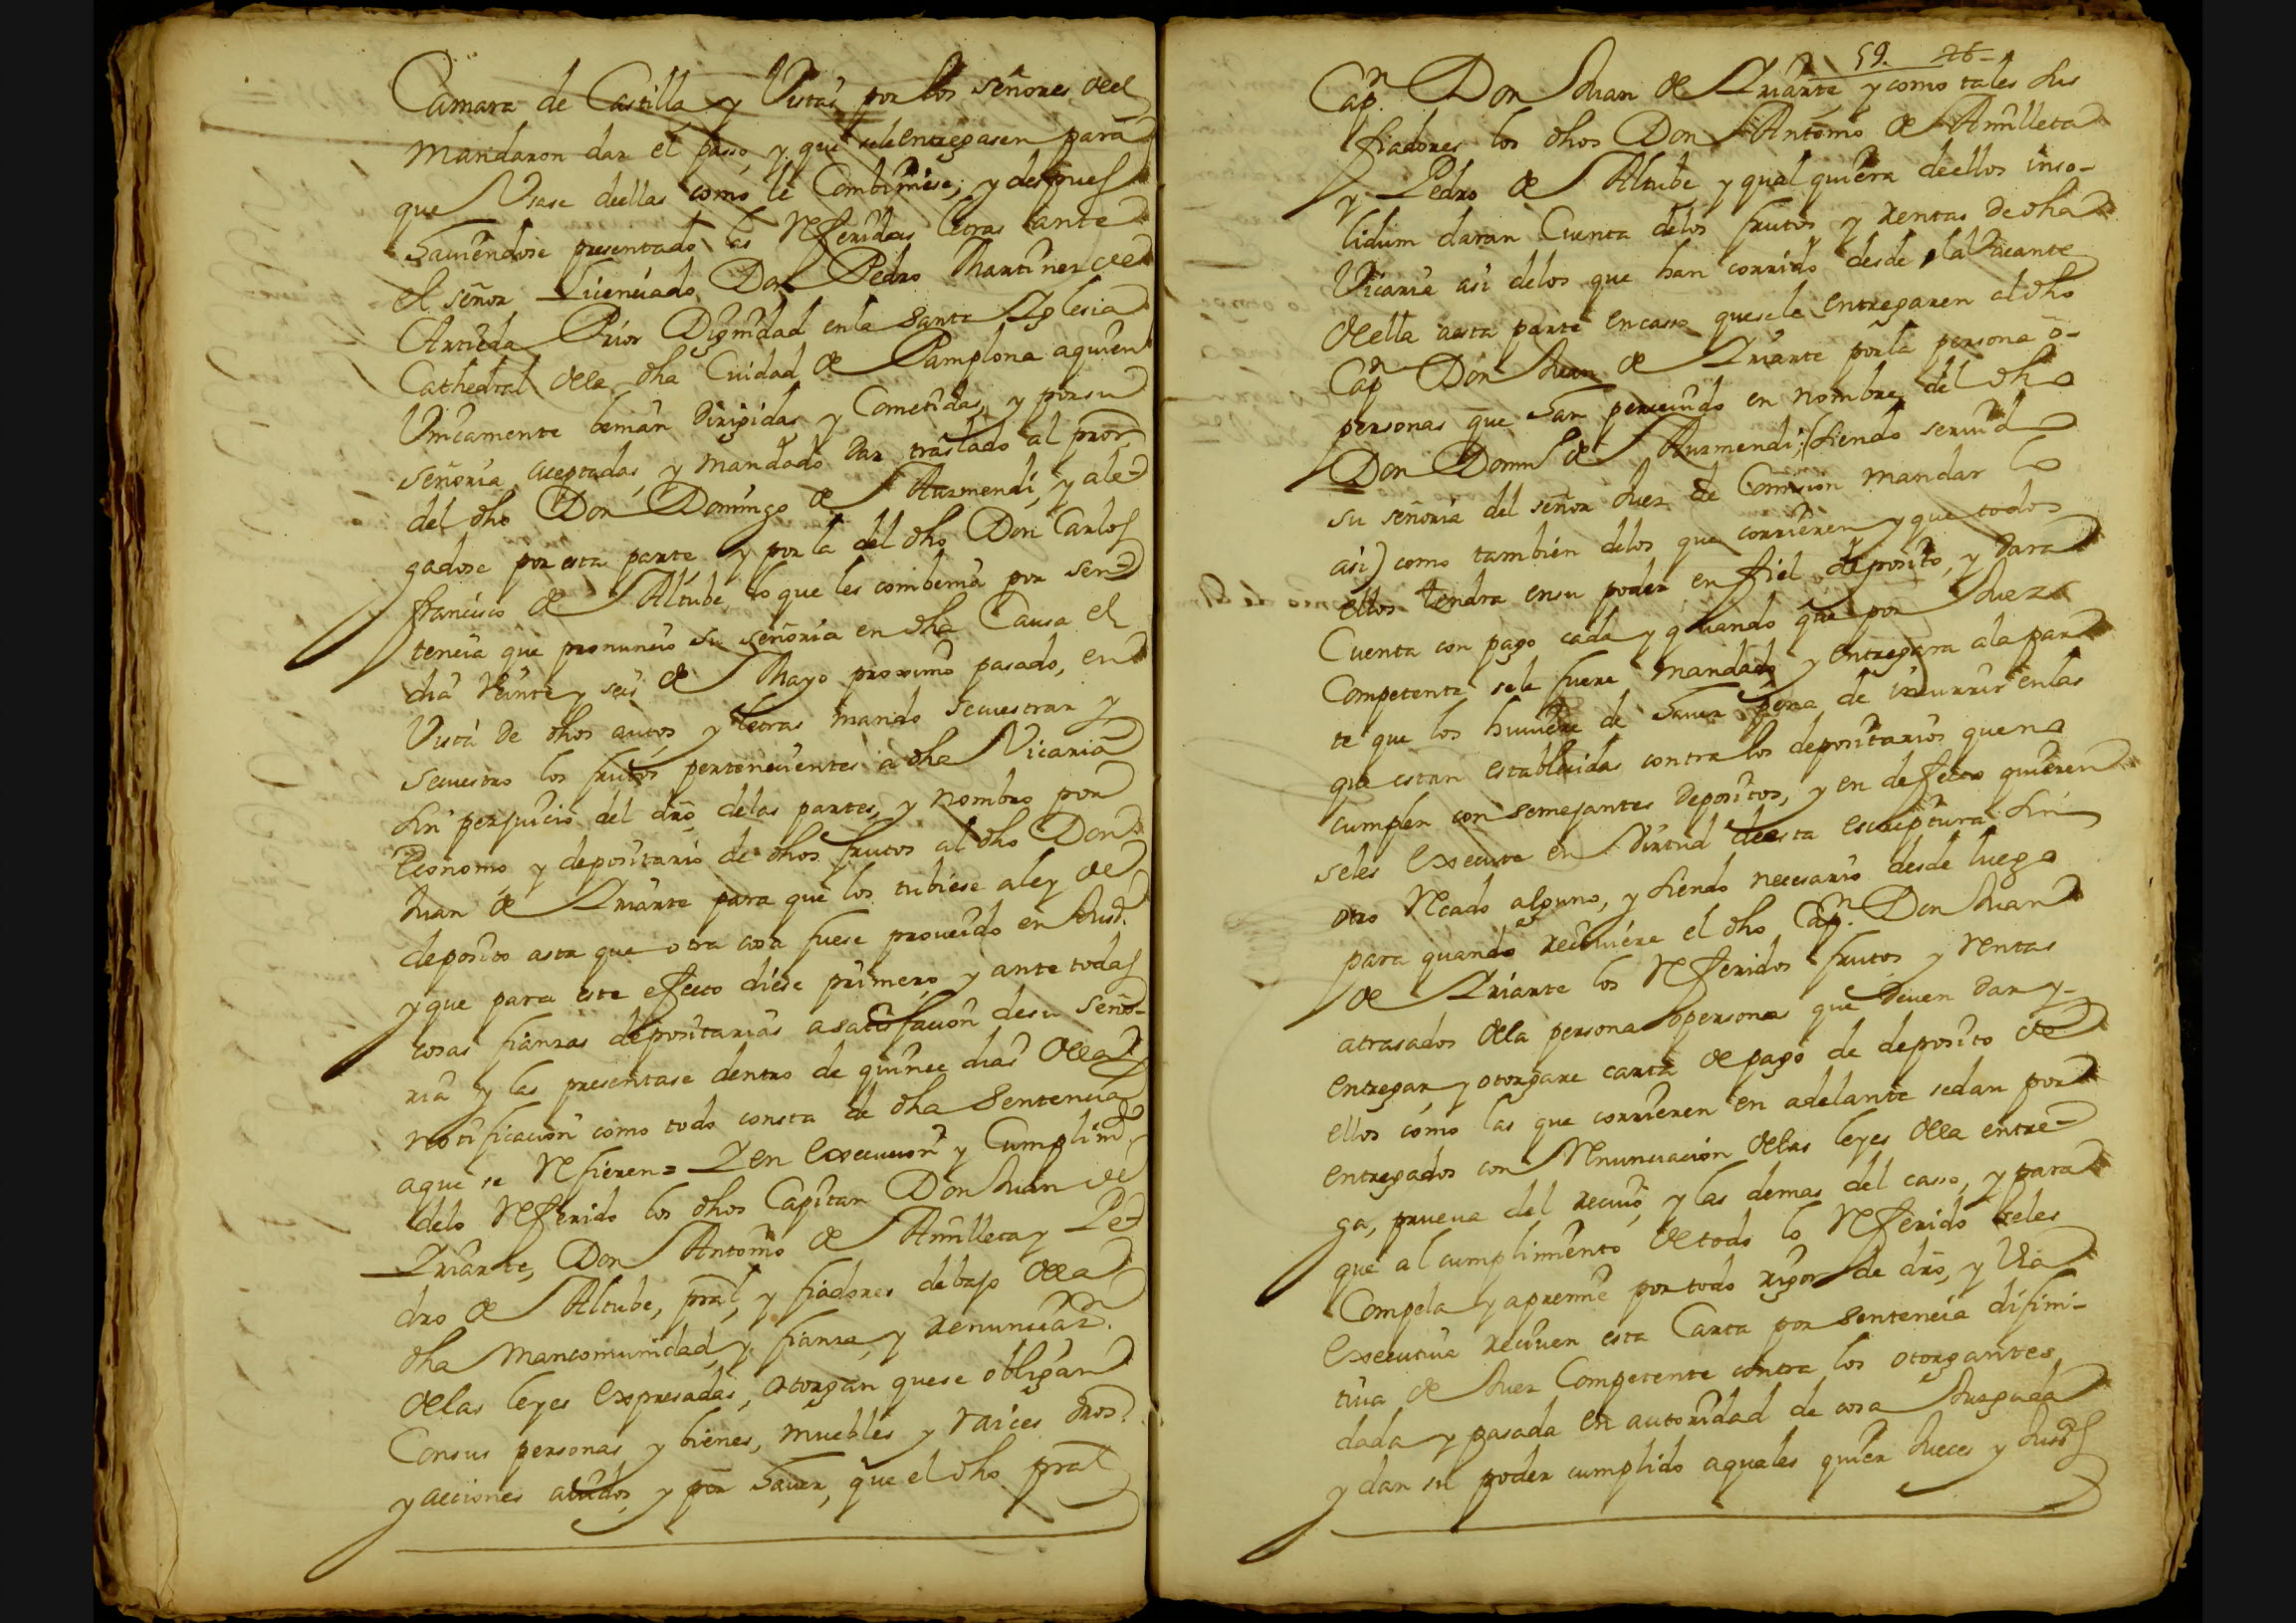 Camara de Castilla y Vistas por los señores del
mandaron dar el passo, y que sele entregasen para
que Vsase dellas como le Combiniese; y despues
haviendose presentado las Referidas letras ante
el señor Licenciado Don Pedro Martinez de
Artieda Prior Dignidad en la Santa Iglesia
Cathedral dela dha Ciudad de Pamplona aquien
Vnicamente benian Dirigidas y Cometidas, y por su
señoria aceptadas, y mandado dar traslado al pror.
del dho Don Domingo de Aurmendi, y ale
gadose por esta parte y por la del dho Don Carlos
francisco de Altube lo que les combenia por sen
tencia que pronuncio su señoria en dha Causa el
dia Veinte y seis de Mayo proximo pasado, en
Vista de dhos autos y letras mando secuestrar y
secuestro los frutos pertenecientes a dha Vicaria
sin perjuicio del dro delas partes, y nombro por
Economo y depositario de dhos frutos al dho Don
Juan de Iriarte para que los tubiese a ley de
deposito asta que otra cosa fuese proveido en Jusa.
y que para este efecto diese primero, y ante todas
cosas fianzas depositarias a satisfacion de su seño-
ria y las presentase dentro de quince dias dela
notificacion como todo consta de dha Sentencia
aque se Refieren = Y en execucion y Cumplimto.
delo Referido los dhos Capitan Don Juan de
Iriarte, Don Antonio de Amilleta y Pe
dro de Altube, pral, y fiadores debajo dela
dha Mancomunidad, y fianza, y renunciazn.
delas leyes expresadas, otorgan que se obligan
Con sus personas y bienes, muebles y raices dros.
y acciones avidos y por haver, que el dho pral
59. 26-
Capn. Don Juan de Iriarte, y como tales sus
fiadores los dhos Don Antonio de Amilleta
y Pedro de Altube y qual quiera deellos inso-
lidum daran Cuenta delos frutos y rentas de dha
Vicaria asi delos que han corrido desde la Vacante
deella asta parte en casso que se le entregaren al dho
Capn Don Juan de Iriarte por la persona o-
personas que han percivido en nombre del dho
Don Domo de Aurmendi; (siendo servid
su señoria del señor Juez de Comision mandar lo
asi) como tambien delos que corrieren y que todos
ellos tendra en su poder en fiel deposito, y dara
Cuenta con pago cada y quando que por Juez
Competente se le fuere mandado y entregara ala par
te que los huviere de haver pena de incurrir en las
que estan establecidas contra los depositarios que no
cumplen con semejantes depositos, y en defecto quieren
seles execute en Virtud deesta escriptura sin
otro Recado alguno, y siendo necesario desde luego
para quando reciviere el dho Capn. Don Juan
de Iriarte los Referidos frutos y rentas
atrasados dela persona o personas que deven dar y-
entregar, y otorgare carta de pago de deposito de
ellos como las que corrieren en adelante se dan por
entregados con Renunciacion delas leyes dela entre
ga, prueva del recivo, y las demas del casso, y para
que al cumplimiento de todo lo Referido seles
Compela y apremie por todo rigor de dro, y Via
executiva reciven esta Carta por sentencia difini-
tiva de Juez Competente contra los otorgantes
dada y pasada en autoridad de cosa Juzgada
y dan su poder cumplido aquales quier Jueces y Jusas